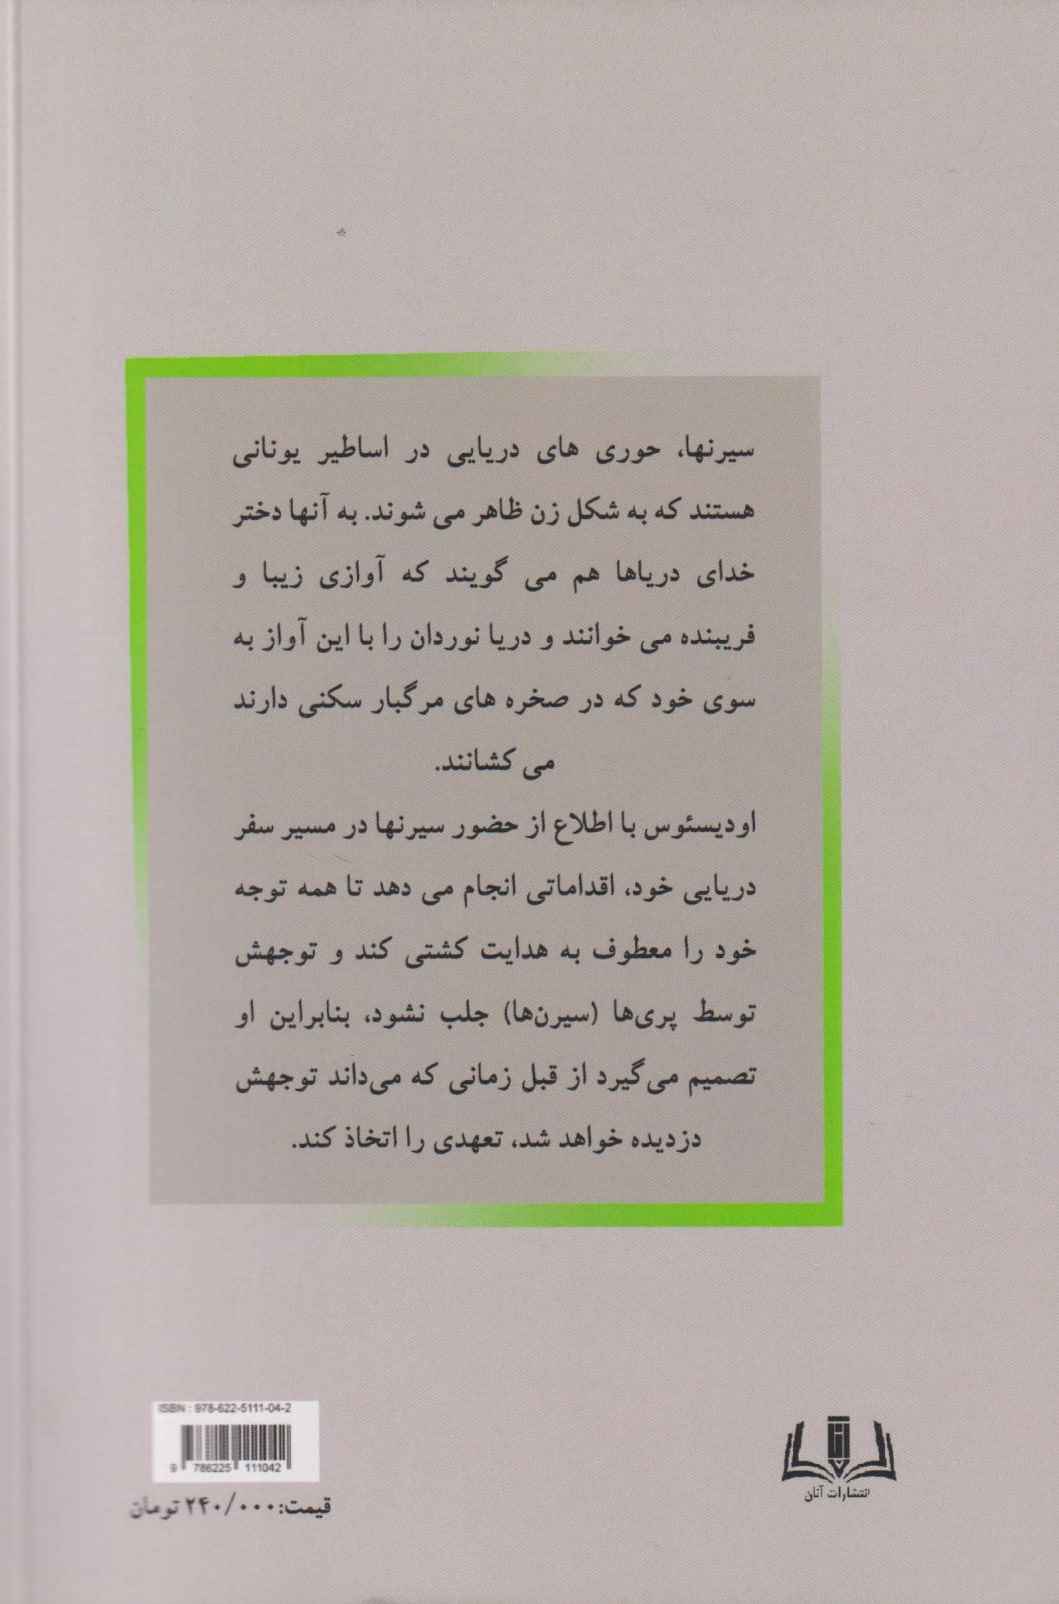 سیرنها، حوری های دریایی در اساطیر یونانی
هستند که به شکل زن ظاهر می شوند. به آنها دختر
خدای دریاها هم می گویند که آوازی زیبا و
فریبنده می خوانند و دریا نوردان را با این آواز به
سوی خود که در صخره های مرگبار سکنی دارند
می کشانند.
اودیسئوس با اطلاع از حضور سیرنها در مسیر سفر
دریایی خود، اقداماتی انجام می دهد تا همه توجه
خود را معطوف به هدایت کشتی کند و توجهش
توسط پری‌ها (سیرن‌ها) جلب نشود، بنابراین او
تصمیم می‌گیرد از قبل زمانی که می‌داند توجهش
دزدیده خواهد شد، تعهدی را اتخاذ کند.
ISBN : 978-622-5111-04-2
9 786225 111042
قیمت: ۲۴۰/۰۰۰ تومان
انتشارات آنان